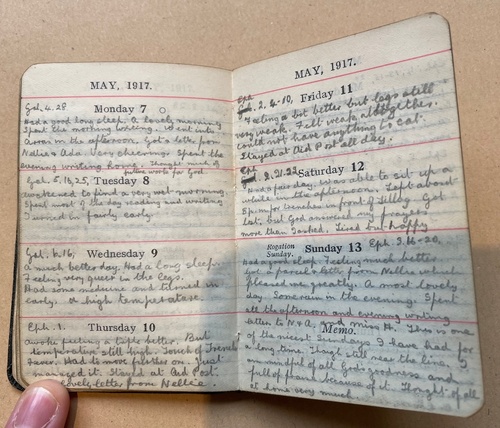 MAY, 1917.
Gal. 4. 28
Monday 7
Had a good long sleep. A lovely morning
Spent the morning writing. Went into
Arras in the afternoon. Got letters from
Nellie & Ada. Very cheering. Spent the
evening writing home. Thought much of
future work for God.
Gal. 5, 13, 25, Tuesday 8
Awakened to find a very wet morning.
Spent most of the day reading and writing
Turned in fairly early.
Gal. 6. 16,
Wednesday 9
A much better day. Had a long sleep.
Feeling very queer in the legs.
Had some medicine and turned in
early. A high temperature.
Eph. 1.
Thursday 10
Awoke feeling a little better. But
temperature still high. Touch of Trench
fever. Had to move further on. Just
managed it. Stayed at Aid Post.
Lovely letter from Nellie.
MAY, 1917.
Eph. 2. 4-10, Friday 11
Feeling a bit better but legs still
very weak. Felt weak altogether.
Could not have anything to eat.
Stayed at Aid Post all day.
Eph 3. 21.
Saturday 12
Had a fair day. Was able to sit up a
while in the afternoon. Left about
for trenches in front of . Got
but God answered my prayers
more than I asked. Tired but happy
Rogation
Sunday.
Sunday 13 Eph. 3. 16-20,
Had a good sleep. Feeling much better
Got a parcel & letter from Nellie which
pleased me greatly. A most lovely
day. Some rain in the evening. Spent
all the afternoon and evening writing
letter to N & A. and Miss H. This is one
Memo.
of the nicest Sundays I have had for
a long time. Though still near the line, I
am mindful of all God's goodness and
full of praise because of it. Thought of all
at home very much.